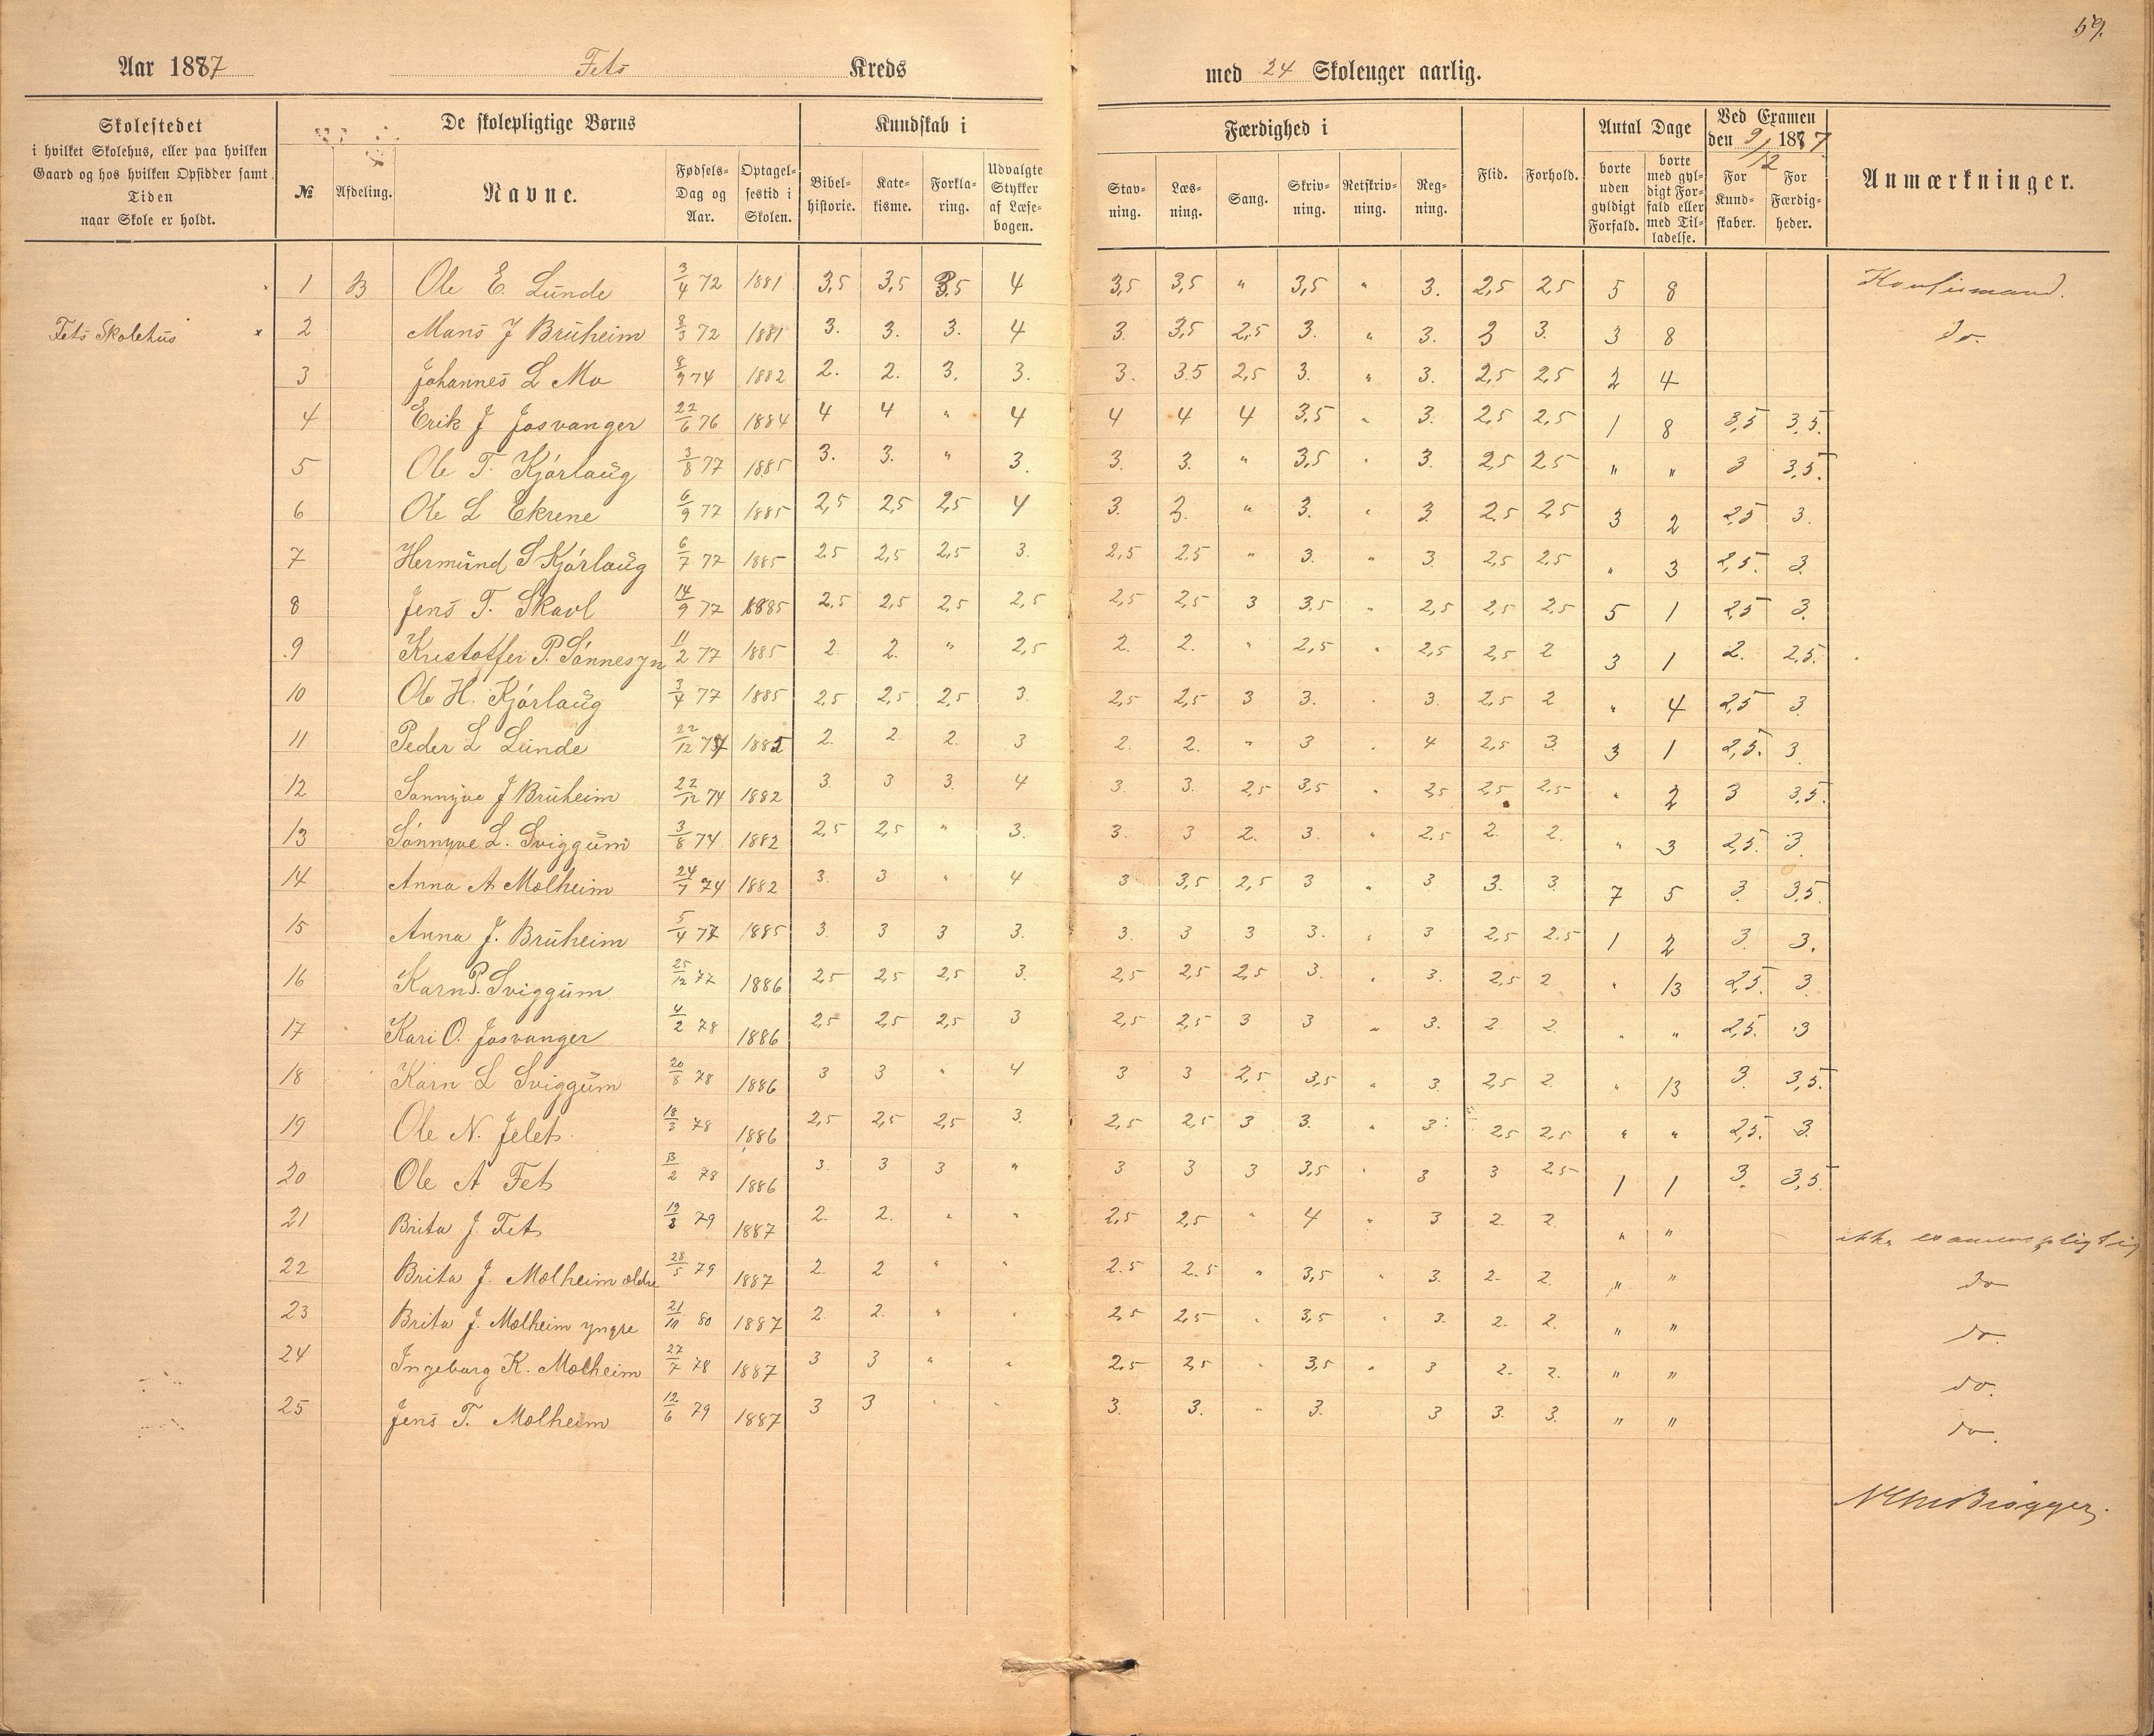 59.
Aar 1887 Fets Kreds med 24 Skoleuger aarlig.
Skolestedet i hvilket Skolehus, eller paa hvilken Gaard og hos hvilken Opsidder samt Tiden naar Skole er holdt.
De skolepligtige Børns
№ Afdeling. Navne. Fødsels-Dag og Aar. Optagel-sestid i Skolen.
Kundskab i
Bibel-historie. Kate-kisme. Forkla-ring. Udvalgte Stykker af Læse-bogen.
Færdighed i
Stav-ning. Læs-ning. Sang. Skriv-ning. Retskriv-ning. Reg-ning. Flid. Forhold.
Antal Dage
borte uden gyldigt Forfald. borte med gyl-digt For-fald eller med Til-ladelse.
Ved Examen den 9/12 1887
For Kund-skaber. For Færdig-heder.
Anmærkninger.
1 B Ole E. Lunde 3/4 72 1881 3,5 3,5 3,5 4 3,5 3,5 " 3,5 " 3. 2,5 2,5 5 8 Konfirmand.
Fets Skolehus x 2 Mons J Bruheim 8/3 72 1881 3. 3. 3. 4 3. 3,5 2,5 3. " 3. 3 3. 3 8 do.
3 Johannes L Mo 8/9 74 1882 2. 2. 3. 3. 3. 3.5 2,5 3. " 3. 2,5 2,5 2 4
4 Erik J Josvanger 22/6 76 1884 4 4 " 4 4 4 4 3,5 " 3. 2,5 2,5 1 8 3,5 3,5.
5 Ole T. Kjørlaug 3/8 77 1885 3. 3. " 3. 3. 3. " 3,5 " 3. 2,5 2,5 " " 3 3,5.
6 Ole L Ekrene 6/9 77 1885 2,5 2,5 2,5 4 3. 3. " 3. " 3 2,5 2,5 3 2 2,5 3.
7 Hermund S Kjørlaug 6/7 77 1885 2,5 2,5 2,5 3. 2,5 2,5 " 3. " 3. 2,5 2,5 " 3 2,5. 3.
8 Jens T. Skavl 14/9 77 1885 2,5 2,5 2,5 2,5 2,5 2,5 3 3,5 " 2,5 2,5 2,5 5 1 2,5 3.
9 Kristoffer P. Sønnesyn 11/2 77 1885 2. 2. " 2,5 2. 2. " 2,5 " 2,5 2,5 2 3 1 2. 2,5.
10 Ole H. Kjørlaug 3/4 77 1885 2,5 2,5 2,5 3. 2,5 2,5 3 3. " 3. 2,5 2 " 4 2,5 3.
11 Peder L Lunde 22/12 74 1882 2. 2. 2. 3 2. 2. " 3 " 4 2,5 3. 3 1 2,5. 3.
12 Sønnyve J Bruheim 22/12 74 1882 3. 3 3. 4 3. 3. 2,5 3,5 " 2,5 2,5 2,5 " 2 3 3,5.
13 Sønnyve L. Sviggum 3/8 74 1882 2,5 2,5 " 3. 3. 3 2. 3. " 2,5 2. 2. " 3 2,5. 3.
14 Anna A Molheim 24/7 74 1882 3. 3 " 4 3 3,5 2,5 3 " 3 3. 3. 7 5 3. 3,5.
15 Anna J. Bruheim 5/4 77 1885 3. 3 3 3. 3. 3 3 3. " 3 2,5 2,5 1 2 3. 3.
16 Karn P. Sviggum 25/12 77 1886 2,5 2,5 2,5 3. 2,5 2,5 2,5 3. " 3. 2,5 2 " 13 2,5. 3
17 Kari O. Josvanger 4/2 78 1886 2,5 2,5 2,5 3 2,5 2,5 3 3 " 3. 2 2. " " 2,5. 3
18 Karn L Sviggum 20/8 78 1886 3 3 " 4 3 3 2,5 3,5 " 3. 2,5 2. " 13 3. 3,5.
19 Ole N. Jelet 18/3 78 1886 2,5 2,5 2,5 3. 2,5 2,5 3 3. " 3. 2,5 2,5 " " 2,5. 3.
20 Ole A Fet 13/2 78 1886 3. 3 3 " 3 3 3 3,5 " 3 3 2,5 1 1 3. 3,5.
21 Brita J. Fet 19/8 79 1887 2. 2. " " 2,5 2,5 " 4 " 3 2. 2. " " ikke examenspligtig
22 Brita J. Molheim ældre 28/5 79 1887 2. 2 " " 2.5 2.5 " 3,5 " 3. 2. 2. " " do
23 Brita J. Molheim yngre 21/10 80 1887 2. 2. " " 2,5 2,5 " 3,5 " 3. 2. 2. " " do.
24 Ingeborg K. Molheim 27/7 78 1887 3 3 " " 2,5 2,5 " 3,5 " 3 2. 2. " " do.
25 Jens T. Molheim 12/6 79 1887 3 3 " " 3. 3. " 3. 3 3. 3. " " do.